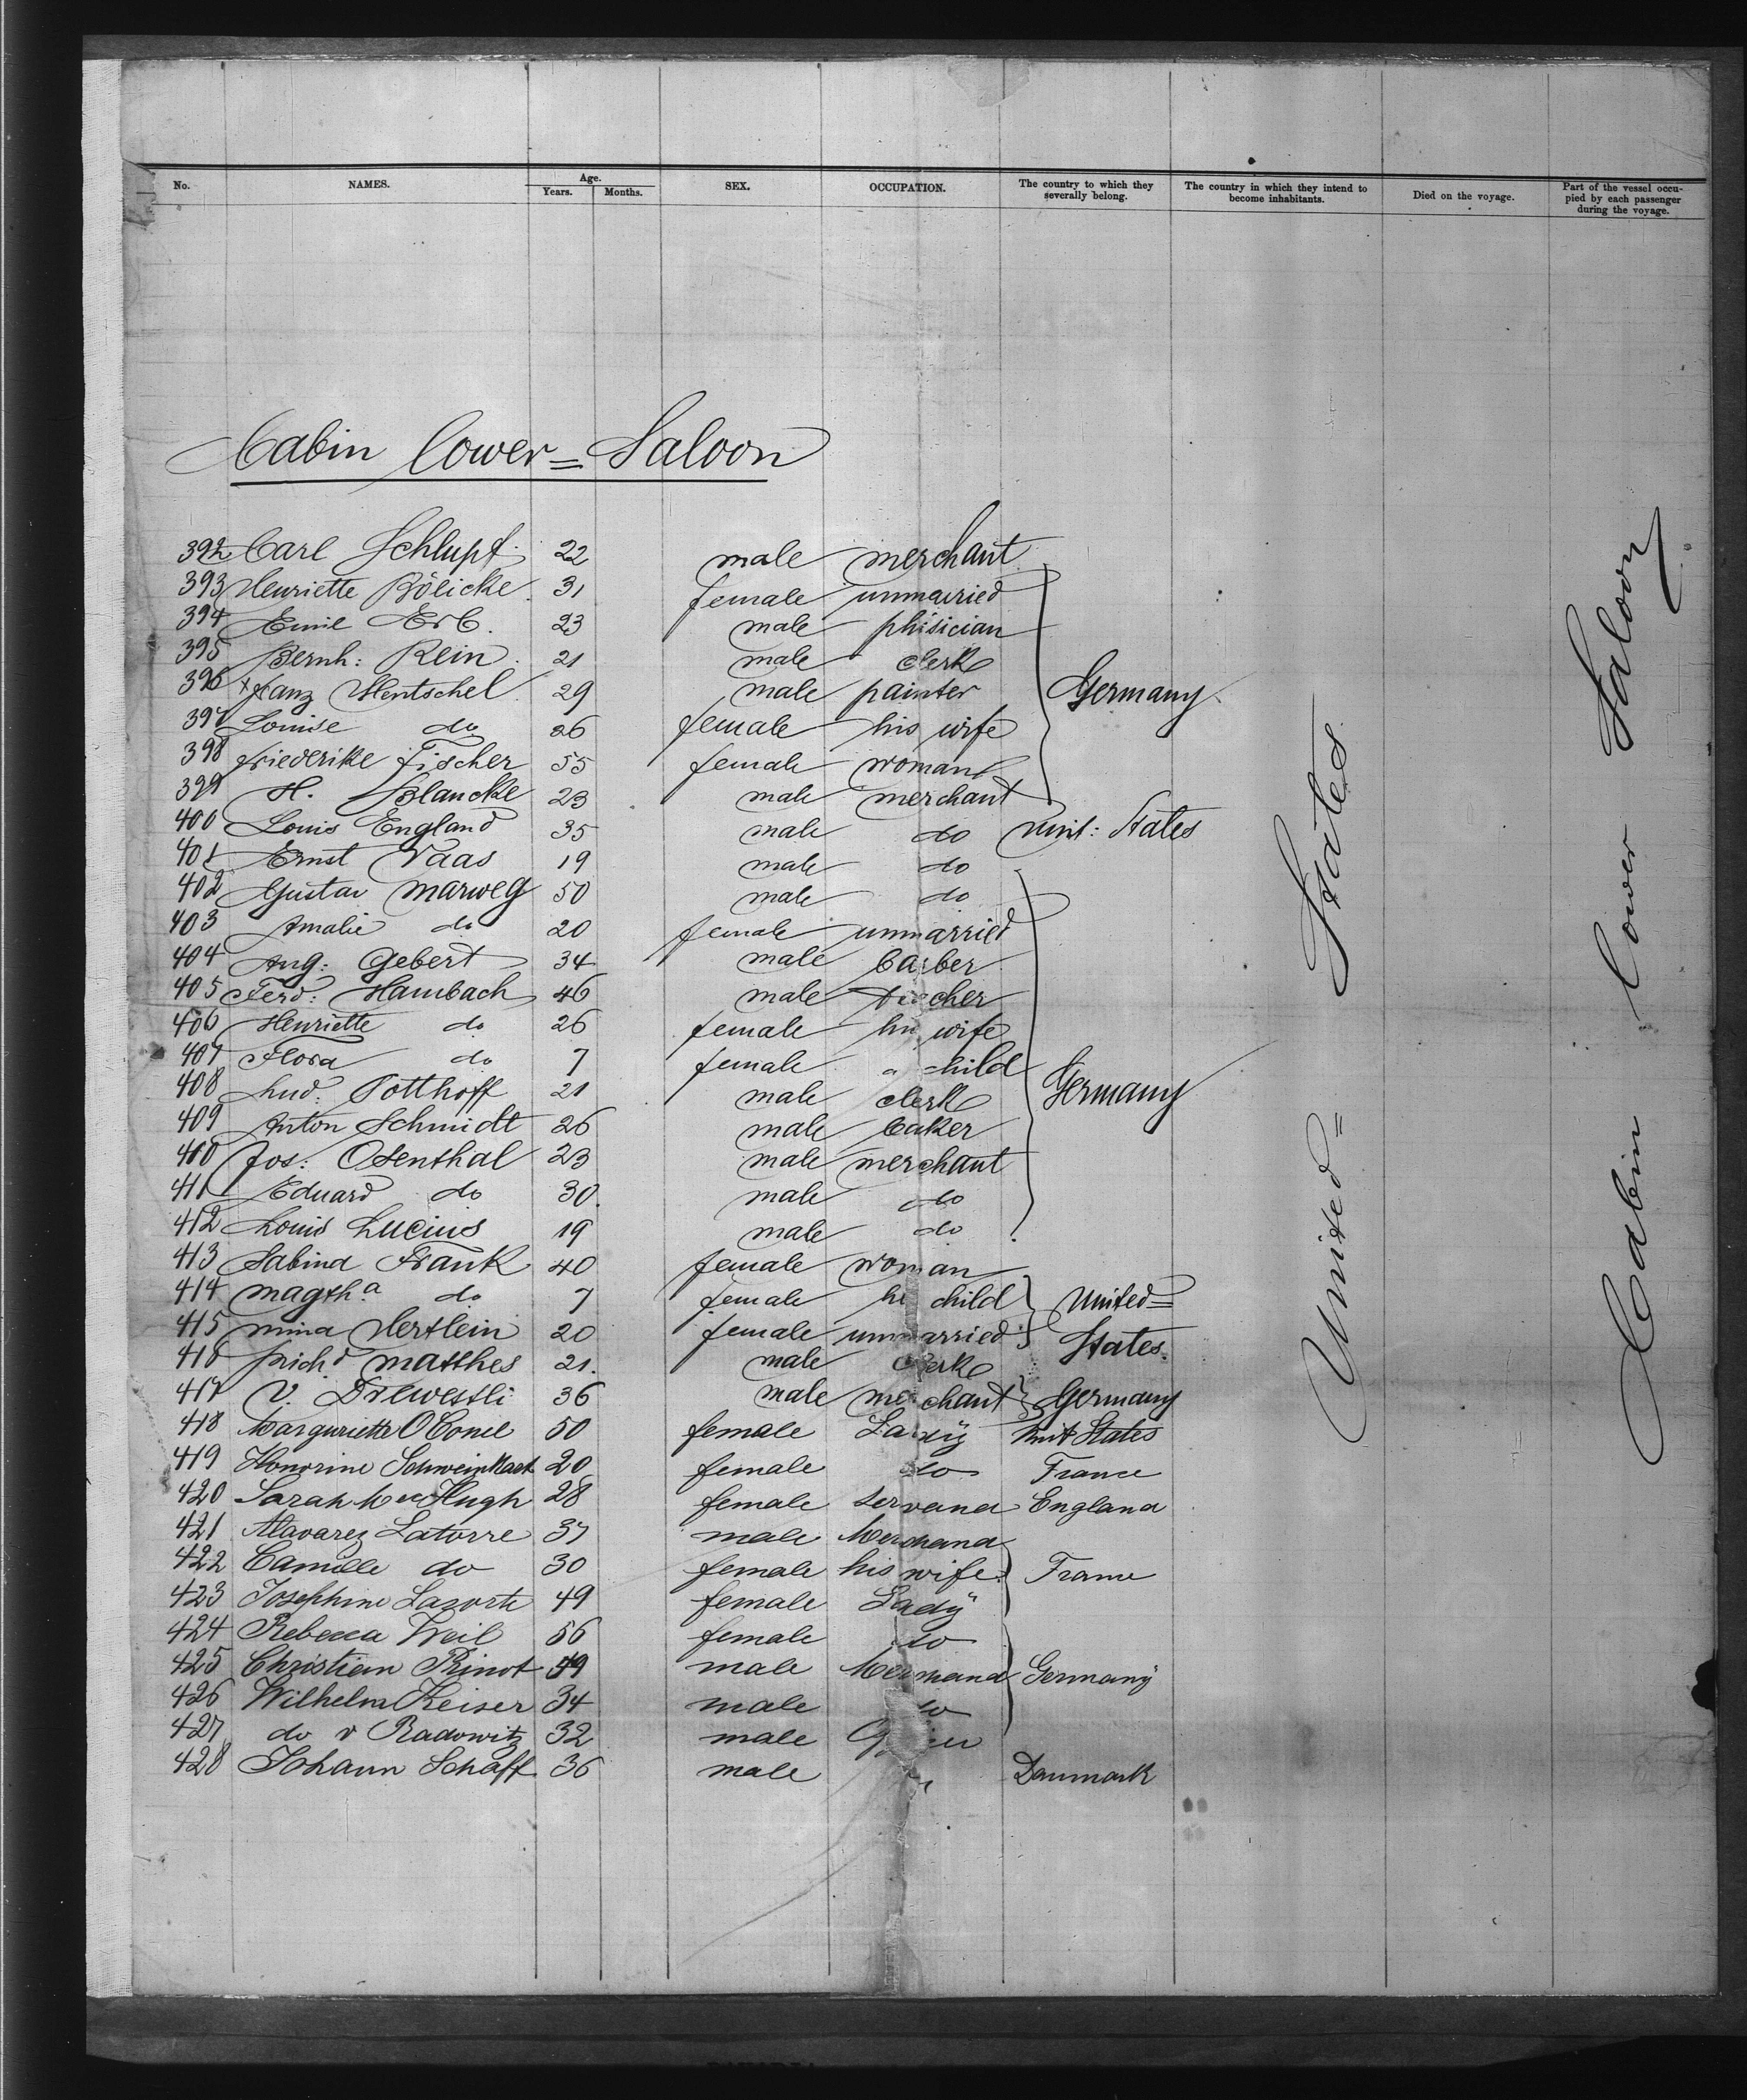 No. NAMES. Age. Years. Months. SEX. OCCUPATION. The country to which they severally belong. The country in which they intend to become inhabitants. Died on the voyage. Part of the vessel occupied by each passenger during the voyage.
Cabin lower = Saloon
392 Carl Schlupf 22 male merchant
393 Henriette Bölicke 31 female unmarried
394 Emil Erb. 23 male phisician
395 Bernh: Rein 21 male clerk
396 Franz Hentschel 29 male painter Germany
397 Louise do 26 female his wife
398 Friederike Fischer 55 female woman
399 H. Blancke 23 male merchant
400 Louis England 35 male do Unit: States
401 Ernst Vaas 19 male do
402 Gustav Marweg 50 male do
403 Amalie do 20 female unmarried
404 Aug: Gebert 34 male barber
405 Ferd: Hambach 46 male
406 Henriette do 26 female his wife
407 Flora do 7 female " child
408 Lud: Potthoff 21 male clerk Germany
409 Anton Schmidt 26 male baker
410 Jos: Osenthal 23 male merchant
411 Eduard do 30 male do
412 Louis Lucius 19 male do
413 Sabina Frank 40 female woman
414 Magtha do 7 female child United=
415 Mina Hertlein 20 female unmarried States.
416 Frichd Matthes 21. male clerk
417 V. 36 male merchant Germany
418 Marguriette OConel 50 female Lady Unit States
419 Honorine 20 female do France
420 Sarah McHugh 28 female servand England
421 Alavarez Latorre 37 male Merchand
422 Camille do 30 female his wife France
423 Josephine 49 female Lady
424 Rebecca Weil 56 female do
425 Christian Prinot 49 male Merchand Germany
426 Wilhelm Keiser 34 male do
427 do v Radowitz 32 male
428 Johann Schaff 36 male " Danmark
United = States
Cabin lower Saloon